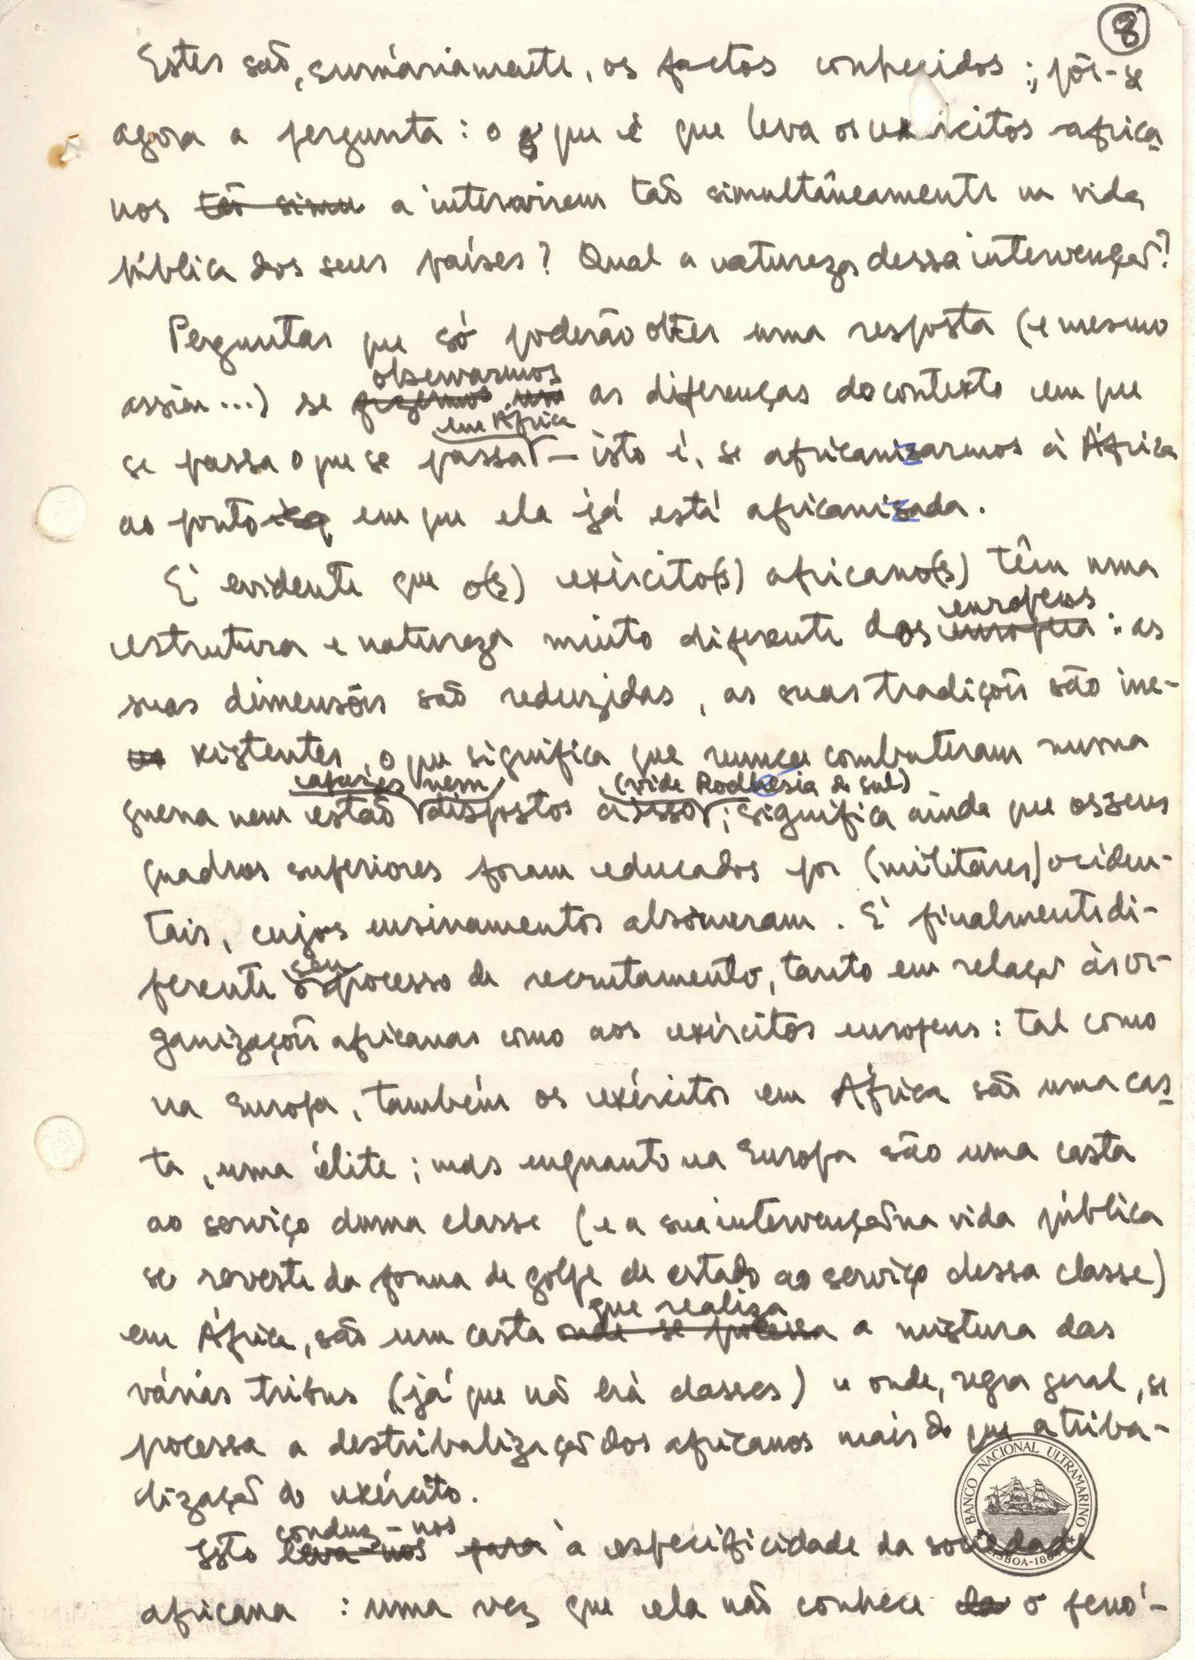 8
Estes são, sumàriamente, os factos conhecidos ; põi-se
agora a pergunta : o que é que leva os exércitos africa
nos tão simu a intervirem tão simultâneamente na vida
pública dos seus países? Qual a natureza dessa intervenção?
Perguntas que só poderão obter uma resposta (e mesmo
observarmos
assim...) se fizermos um as diferenças do contexto em que
em África
se passa o que se passa — isto é, se africanizarmos a África
ao ponto em que ela já está africanizada.
É evidente que o(s) exército(s) africano(s) têm uma
europeus
estrutura e natureza muito diferente dos europeu : as
suas dimensões são reduzidas, as suas tradições são ine-
xistentes, o que significa que nunca combateram numa
capazes nem (vide Rodhésia do Sul)
guerra nem estão dispostos a isso ; significa ainda que os seus
quadros superiores foram educados por (militares) ociden-
tais, cujos ensinamentos absorveram. É finalmente di-
seu
ferente o processo de recrutamento, tanto em relação às or-
ganizações africanas como aos exércitos europeus : tal como
na Europa, também os exércitos em África são uma cas
ta, uma élite ; mas enquanto na Europa são uma casta
ao serviço duma classe (e a sua intervenção na vida pública
se reveste da forma de golpe de estado ao serviço dessa classe)
que realiza
em África, são um casta onde se processa a mistura das
várias tribus (já que não há classes) e onde, regra geral, se
processa a destribalização dos africanos mais do que a triba-
lização do exército.
conduz-nos
Isto leva-nos para à especificidade da sociedade
africana : uma vez que ela não conhece o fenó-
BANCO NACIONAL ULTRAMARINO
LISBOA-1864